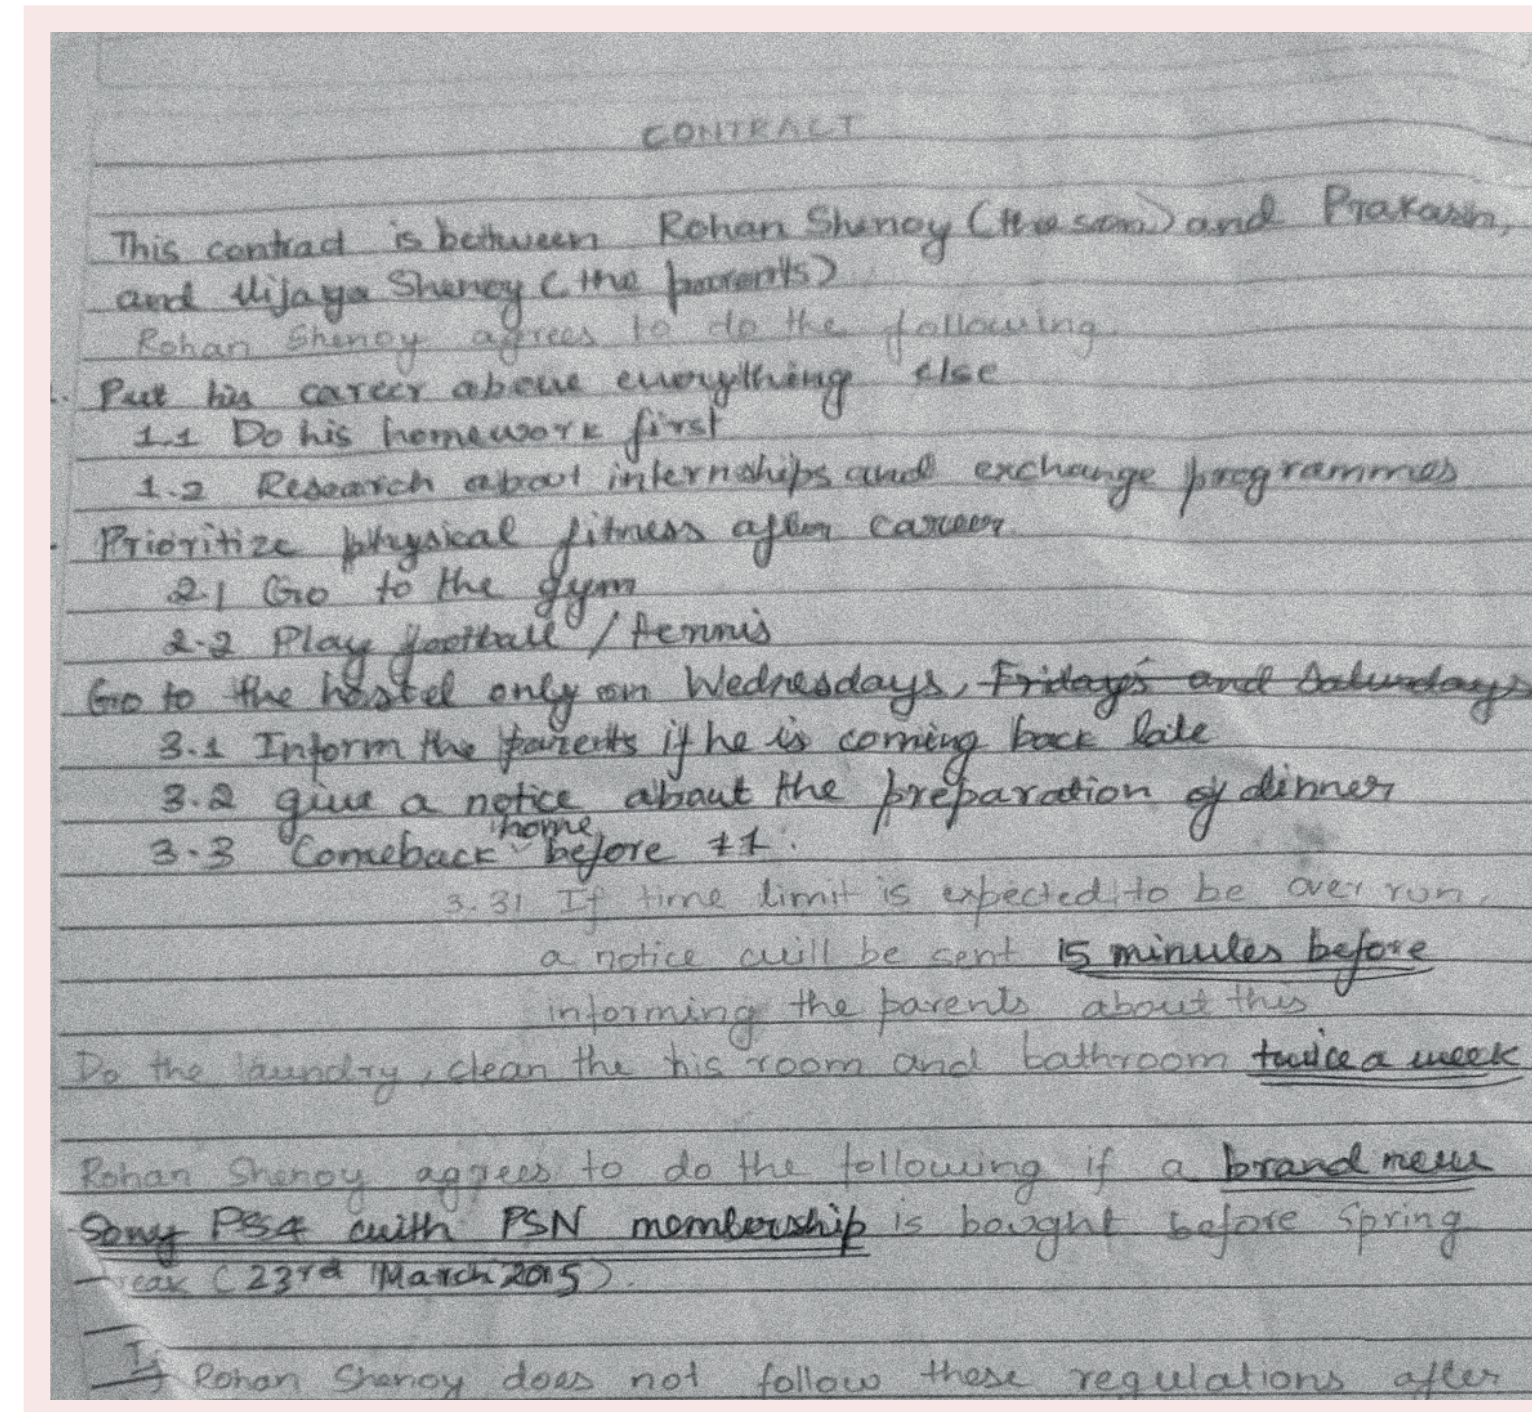 CONTRACT
This contract is between Rohan Shenoy (the son) and Prakash,
and Vijaya Shenoy (the parents)
Rohan Shenoy agrees to do the following
Put his career above everything else
1.1 Do his homework first
1.2 Research about internships and exchange programmes
Prioritize physical fitness after career.
2.1 Go to the gym
2.2 Play football / tennis
Go to the hostel only on Wednesdays, Fridays and Saturdays
3.1 Inform the parents if he is coming back late
3.2 give a notice about the preparation of dinner
home
3.3 Comeback before 11.
3.31 If time limit is expected to be over run,
a notice will be sent 15 minutes before
informing the parents about this
Do the laundry, clean the his room and bathroom twice a week
Rohan Shenoy agrees to do the following if a brand new
Sony PS4 with PSN membership is bought before Spring
reak (23rd March 2015).
If Rohan Shenoy does not follow these regulations after